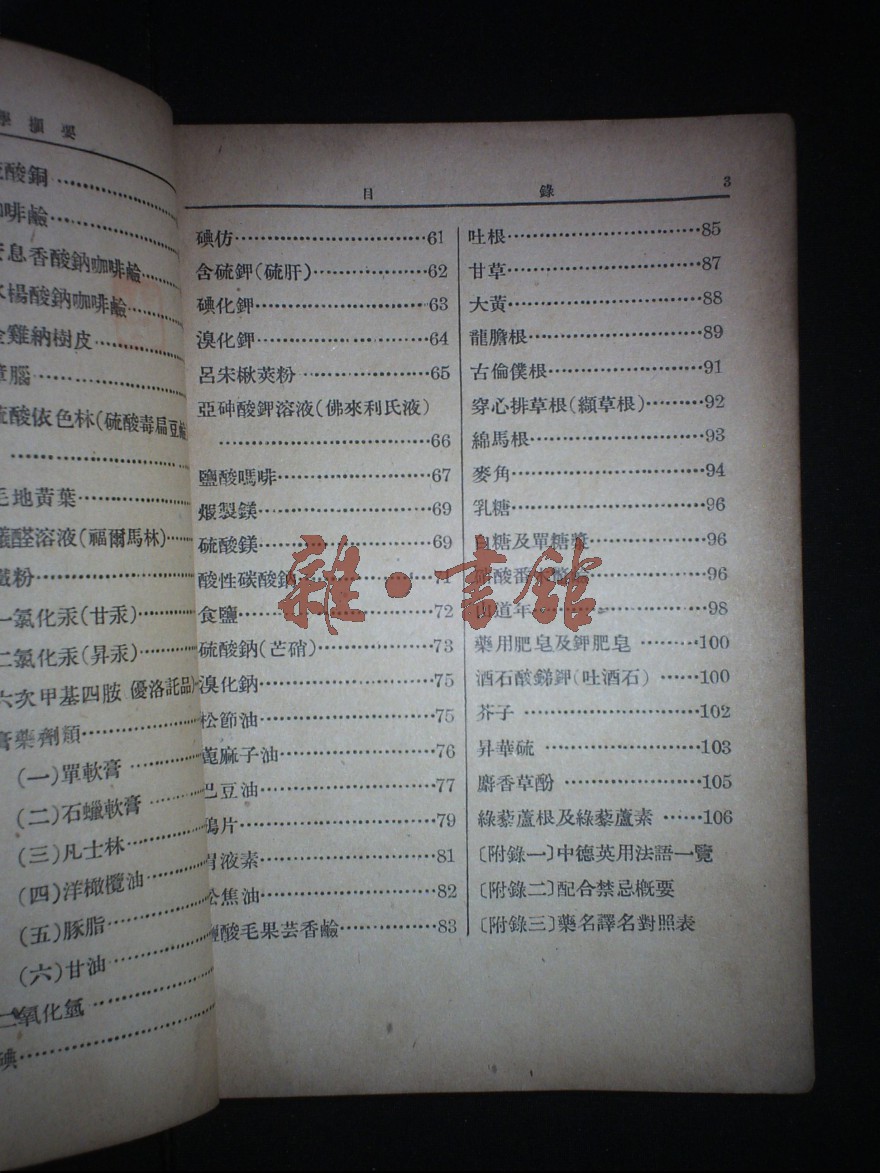 學擷要
酸銅
啡鹼
息香酸鈉咖啡鹼
楊酸鈉咖啡鹼
雞納樹皮
腦
酸依色林(硫酸毒扁豆鹼)
毛地黃葉
醛溶液(福爾馬林)
鐵粉
一氯化汞(甘汞)
二氯化汞(昇汞)
六次甲基四胺(優洛託品)
膏藥劑類
(一)單軟膏
(二)石蠟軟膏
(三)凡士林
(四)洋橄欖油
(五)豚脂
(六)甘油
二氧化氫
碘
目 錄 3
碘仿……61
含硫鉀(硫肝)……62
碘化鉀……63
溴化鉀……64
呂朱楸荚粉……65
亞砷酸鉀溶液(佛來利氏液)
……66
鹽酸嗎啡……67
煅製鎂……69
硫酸鎂……69
酸性碳酸鈉……71
食鹽……72
硫酸鈉(芒硝)……73
溴化鈉……75
松節油……75
蓖麻子油……76
巴豆油……77
鴉片……79
胃液素……81
松焦油……82
鹽酸毛果芸香鹼……83
吐根……85
甘草……87
大黃……88
龍膽根……89
古倫僕根……91
穿心排草根(纈草根)……92
綿馬根……93
麥角……94
乳糖……96
白糖及單糖漿……96
硝酸番木鼈鹼……96
山道年……98
藥用肥皂及鉀肥皂……100
酒石酸銻鉀(吐酒石)……100
芥子……102
昇華硫……103
麝香草酚……105
綠藜蘆根及綠藜蘆素……106
〔附錄一〕中德英用法語一覽
〔附錄二〕配合禁忌概要
〔附錄三〕藥名譯名對照表
雜·書館